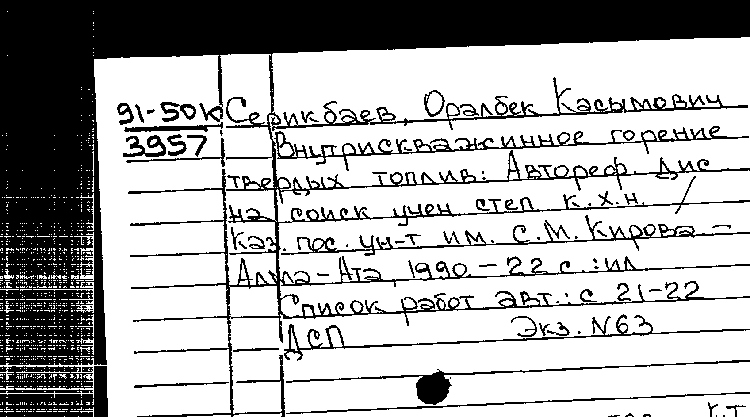 91-50К Серикбаев, Оралбек Касымович
3957 Внутрискважинное горение
твердых топлив: Автореф. Дис
на соиск учен степ к.х.н. /
Каз. гос. ун-т им. С.М. Кирова –
Алма-Ата, 1990 – 22 с. : ил
Список работ авт.: с 21-22
ДСП Экз. N63